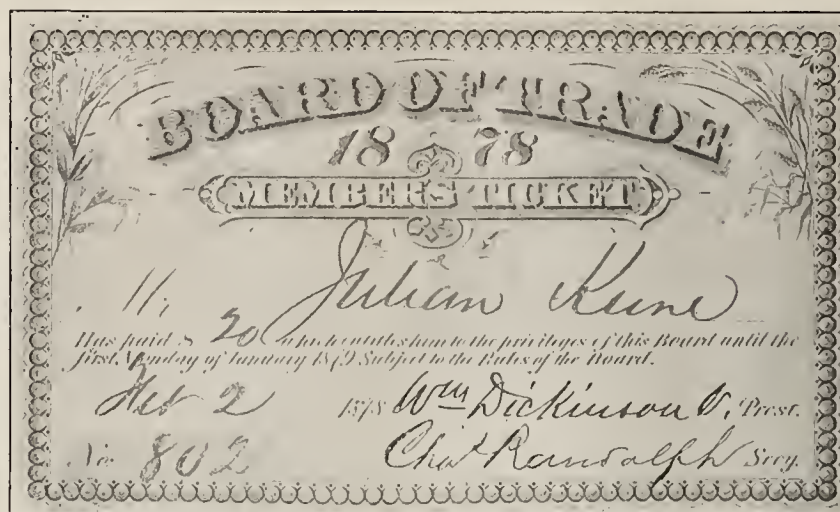 BOARD OF TRADE
18 78
MEMBERS TICKET
Julian Kune
Has paid $ 20 which entitles him to the privileges of this Board until the
first Monday of January 1879 Subject to the Rules of the Board.
Feb 2 1878 Wm Dickinson V. Prest.
No 802 Chas Randolph Secy.